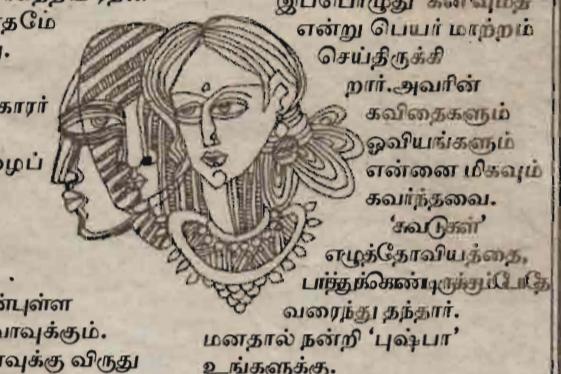 தமே
காரர்
ழைப்
ன்புள்ள
வாவுக்கும்.
ாவுக்கு விருது
இப்பொழுது
என்று பெயர் மாற்றம்
செய்திருக்கி
றார்.அவரின்
கவிதைகளும்
ஓவியங்களும்
என்னை மிகவும்
கவர்ந்தவை.
‘சுவடுகள்’
எழுத்தோவியத்தை,
பார்த்துக்கொண்டிருக்கும்போதே
வரைந்து தந்தார்.
மனதால் நன்றி ‘புஷ்பா’
உங்களுக்கு.